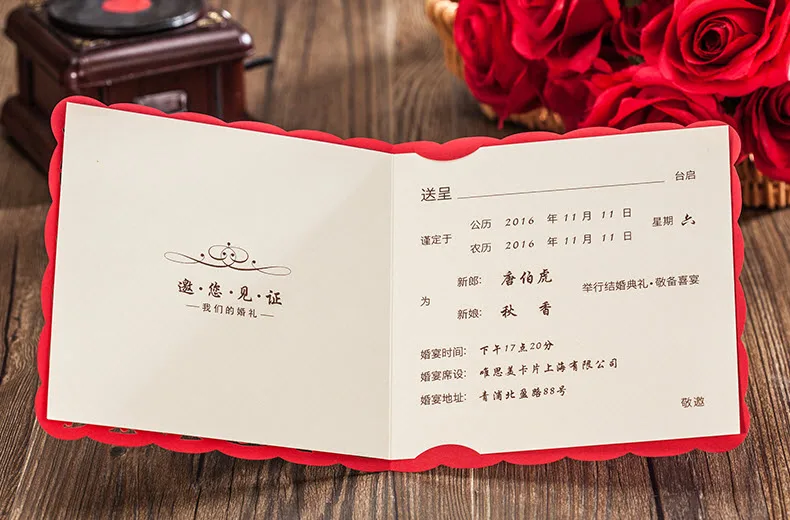 邀·您·见·证
—我们的婚礼—
送呈 台启
谨定于 公历 2016 年 11 月 11 日 星期 六
农历 2016 年 11 月 11 日
为 新郎: 唐伯虎 举行结婚典礼·敬备喜宴
新娘: 秋 香
婚宴时间: 下午17点20分
婚宴席设: 唯思美卡片上海有限公司
婚宴地址: 青浦北盈路88号
敬邀